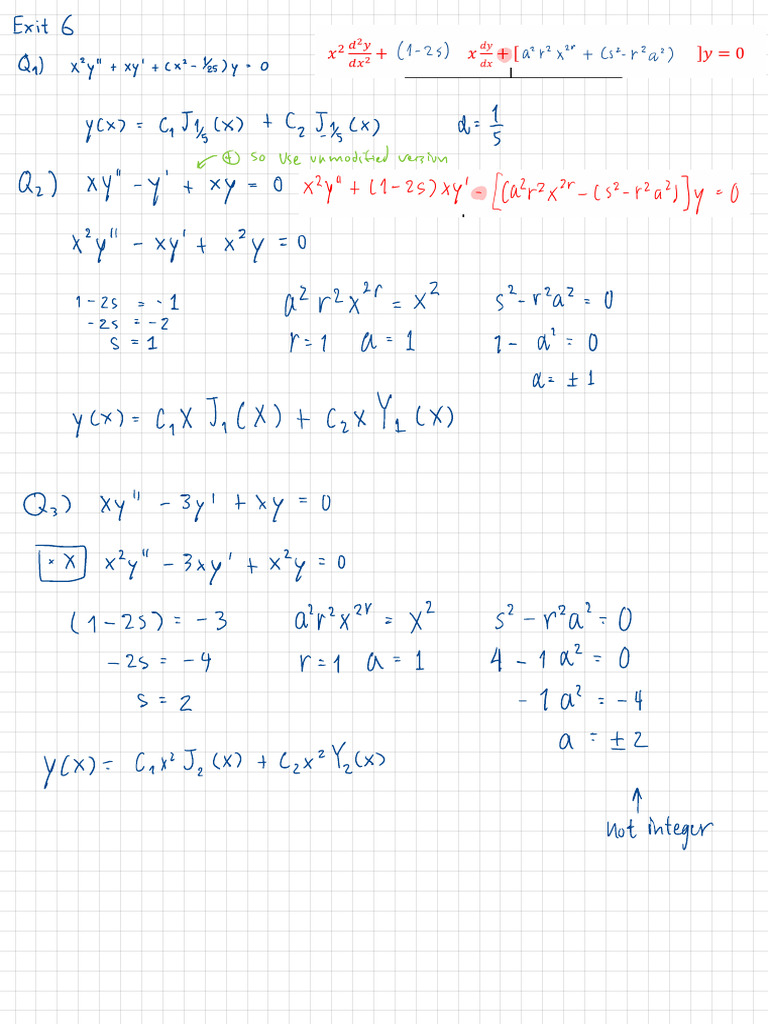 Exit 6
Q1) x²y'' + xy' + (x² - 1/25)y = 0
x² d²y/dx² + (1-2s) x dy/dx + [a²r²x²ʳ + (s²-r²a²) ]y = 0
y(x) = C₁J₁/₅(x) + C₂ J₋₁/₅(x)    d = 1/5
(+) so use unmodified version
Q2) xy'' - y' + xy = 0    x²y'' + (1-2s)xy' - [(a²r²x²ʳ - (s²-r²a²)]y = 0
x²y'' - xy' + x²y = 0
1-2s = -1    a²r²x²ʳ = x²    s²-r²a² = 0
-2s = -2
s = 1    r=1  a=1    1- a² = 0
a = ±1
y(x) = C₁x J₁(x) + C₂x Y₁(x)
Q3) xy'' - 3y' + xy = 0
· x    x²y'' - 3xy' + x²y = 0
(1-2s) = -3    a²r²x²ʳ = x²    s² - r²a² = 0
-2s = -4    r=1  a=1    4 - 1a² = 0
s = 2    - 1a² = -4
a = ±2
y(x) = C₁x²J₂(x) + C₂x²Y₂(x)
↑
not integer